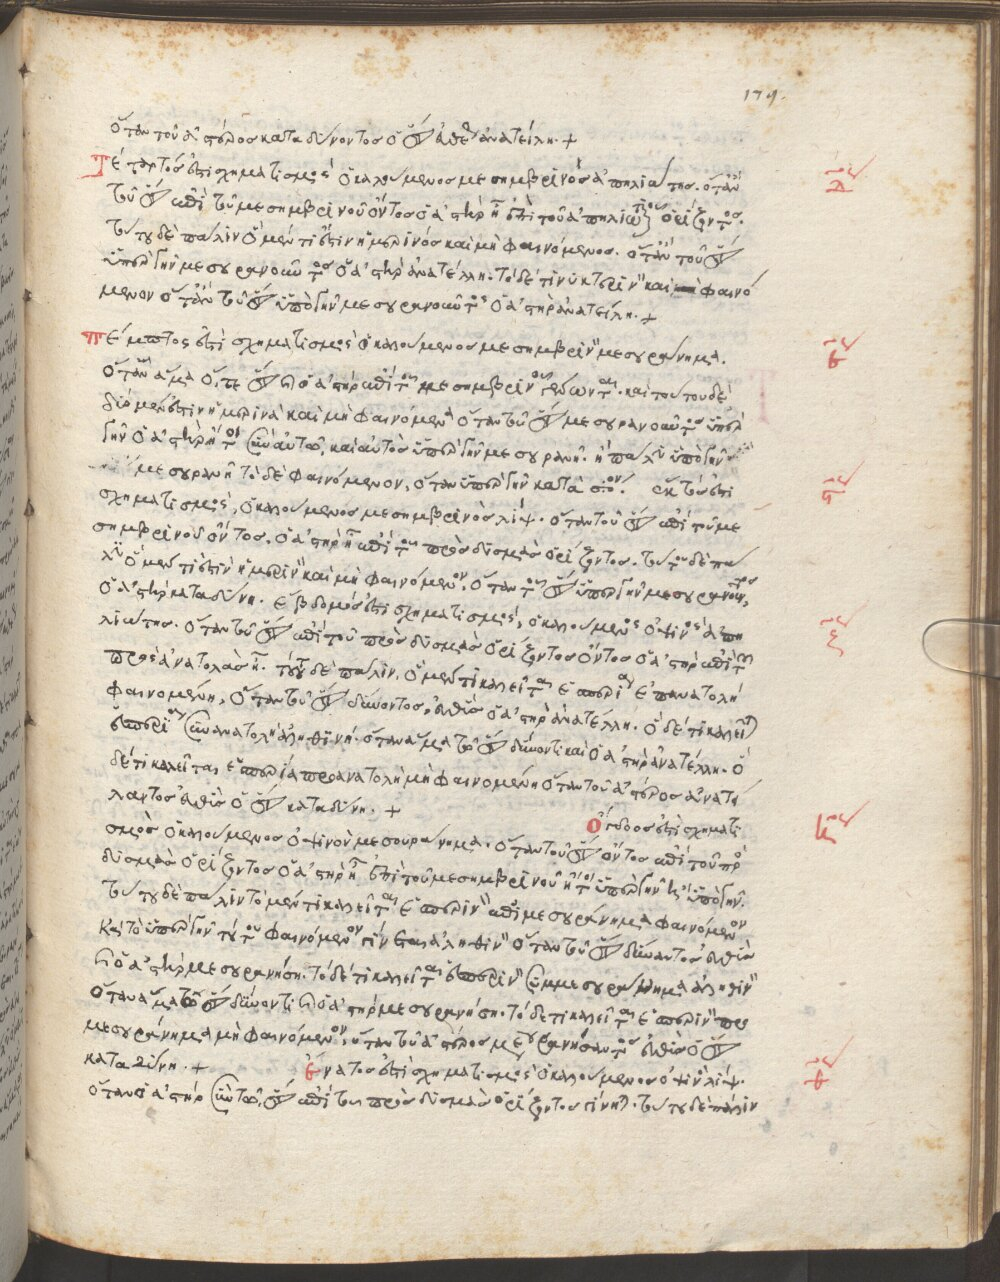 179.
ὅταν τοῦ ἀστέρος καταδύνοντος ὁ ☉ εὐθὺς ἀνατείλη. +
Τέταρτός ἐστι σχηματισμὸς ὁ καλούμενος μεσημβρινὸς ἀπηλιώτης. ὅταν
τοῦ ☉ ἐπὶ τοῦ μεσημβρινοῦ ὄντος ὁ ἀστὴρ ἦ ἐπὶ τοῦ ἀπηλιωτικοῦ ὁρίζοντος.
τούτου δὲ πάλιν ὁ μέν τις ἐστιν ἡμερινὸς καὶ μὴ φαινόμενος. ὅταν τοῦ ☉
ὑπὲρ γῆν μεσουρανοῦντος ὁ ἀστὴρ ἀνατέλλη. τὸ δέ τι νυκτερινὸν καὶ φαινό
μενον ὅταν τοῦ ☉ ὑπὸ γῆν μεσουρανοῦντος ὁ ἀστὴρ ἀνατείλη. +
Πέμπτος ἐστὶ σχηματισμὸς ὁ καλούμενος μεσημβρινὸν μεσουράνημα.
ὅταν ἅμα ὅ τε ☉ καὶ ὁ ἀστὴρ ἐπὶ τοῦ μεσημβρινοῦ γένωνται. καὶ τούτου δὲ
μέν ἐστιν ἡμερινὰ καὶ μὴ φαινόμενα ὅταν τοῦ ☉ μεσουρανοῦντος ὑπὲρ
γῆν ὁ ἀστὴρ ἤτοι σὺν αὐτῷ, καὶ αὐτὸς ὑπὲρ γῆν μεσουρανῆ. ἢ πάλιν ὑπὸ γῆν
μεσουρανῆ τὸ δὲ φαινόμενον, ὅταν ὑπὲρ γῆν κατὰ Ἕκτός ἐστι
σχηματισμὸς, ὁ καλούμενος μεσημβρινὸς λίψ. ὅταν τοῦ ☉ ἐπὶ τοῦ με
σημβρινοῦ ὄντος, ὁ ἀστὴρ ἦ ἐπὶ τοῦ πρὸς δυσμὰς ὁρίζοντος. τούτου δὲ πά
λιν ὁ μέν τις ἐστὶν ἡμερινὸν καὶ μὴ φαινόμενον, ὅταν τοῦ ☉ ὑπὲρ γῆν μεσουρανοῦντος,
ὁ ἀστὴρ καταδύνη. Ἕβδομός ἐστι σχηματισμὸς, ὁ καλούμενος ὀψινὸς ἀπη
λιώτης. ὅταν τοῦ ☉ ἐπὶ τοῦ πρὸς δυσμὰς ὁρίζοντος ὄντος ὁ ἀστὴρ ἐπὶ τοῦ
πρὸς ἀνατολὰς ἦ. τούτου δὲ πάλιν, ὁ μέν τι καλεῖται ἑσπερία ἐπανατολὴ
φαινομένη, ὅταν τοῦ ☉ δύνοντος, εὐθὺς ὁ ἀστὴρ ἀνατέλλη. ὁ δέ τι καλεῖται
ἑσπερία συνανατολὴ ἀληθινή. ὅταν ἅμα τῷ ☉ δύνοντι καὶ ὁ ἀστὴρ ἀνατέλλη. ὁ
δέ τι καλεῖται, ἑσπερία προανατολὴ μὴ φαινομένη ὅταν τοῦ ἀστέρος ἀνατεί
λαντος εὐθὺς ὁ ☉ καταδύνη. + Ὄγδοός ἐστι σχηματι
σμὸς ὁ καλούμενος ὀψινὸν μεσουράνημα. ὅταν τοῦ ☉ ὄντος ἐπὶ τοῦ πρὸς
δυσμὰς ὁρίζοντος ὁ ἀστὴρ ἦ ἐπὶ τοῦ μεσημβρινοῦ ἤτοι ὑπὲρ γῆν ἢ ὑπὸ γῆν.
τούτου δὲ πάλιν τὸ μέν τι καλεῖται ἑσπερινὸν ἐπιμεσουράνημα φαινόμενον
ὅταν τοῦ ☉ δύναντος εὐθὺς
καὶ ὁ ἀστὴρ μεσουρανήση. τὸ δέ τι καλεῖται ἑσπερινὸν συμμεσουράνημα ἀληθινὸν
ὅταν ἅμα τῷ ☉ δύνοντι καὶ ὁ ἀστὴρ μεσουρανήση. τὸ δέ τι καλεῖται ἑσπερινὸν προ
μεσουράνημα μὴ φαινόμενον, ὅταν τοῦ ἀστέρος μεσουρανήσαντος εὐθὺς ὁ ☉
καταδύνη. + Ἔνατός ἐστι σχηματισμὸς ὁ καλούμενος ὀψινὸς λίψ.
ὅταν ὁ ἀστὴρ σὺν τῷ ☉ ἐπὶ τοῦ πρὸς δυσμὰς ὁρίζοντος γίνηται. τούτου δὲ πάλιν